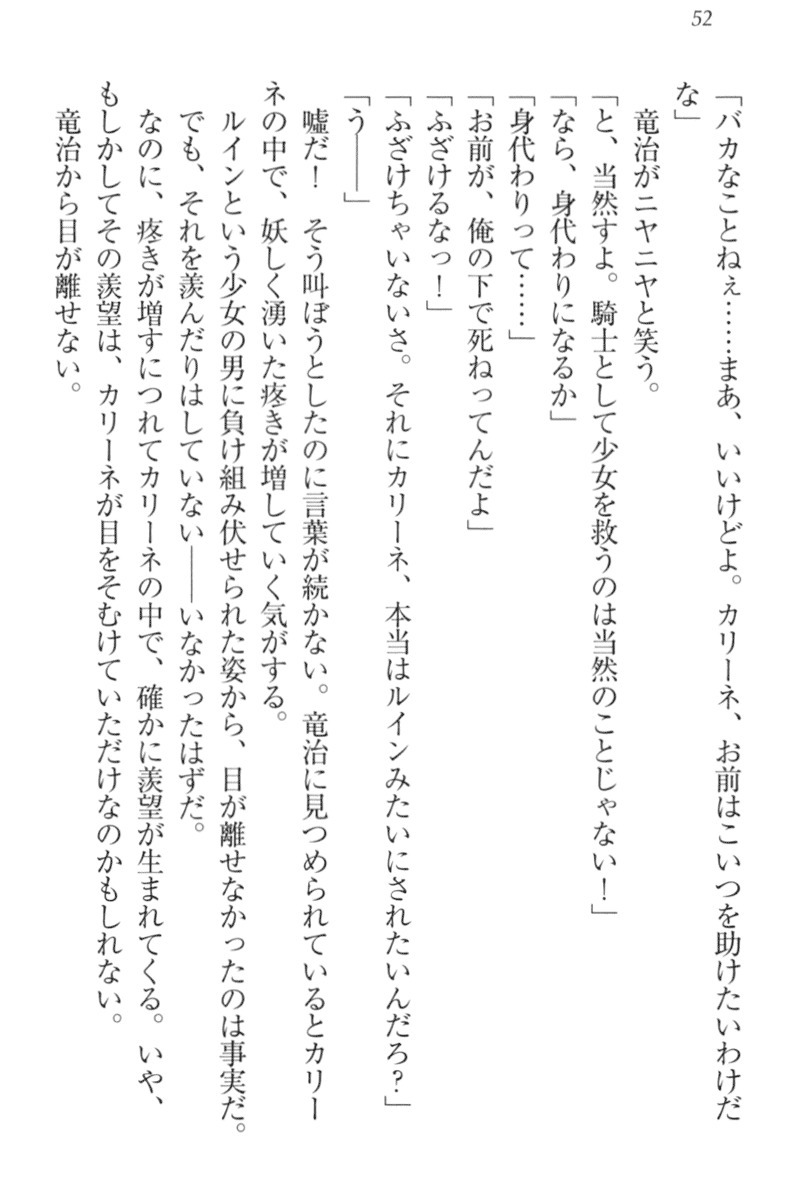 52
「バカなことねぇ……まあ、いいけどよ。カリーネ、お前はこいつを助けたいわけだ
な」
竜治がニヤニヤと笑う。
「と、当然すよ。騎士として少女を救うのは当然のことじゃない！」
「なら、身代わりになるか」
「身代わりって……」
「お前が、俺の下で死ねってんだよ」
「ふざけるなっ！」
「ふざけちゃいないさ。それにカリーネ、本当はルインみたいにされたいんだろ？」
「う――」
嘘だ！　そう叫ぼうとしたのに言葉が続かない。竜治に見つめられているとカリー
ネの中で、妖しく湧いた疼きが増していく気がする。
ルインという少女の男に負け組み伏せられた姿から、目が離せなかったのは事実だ。
でも、それを羨んだりはしていない――いなかったはずだ。
なのに、疼きが増すにつれてカリーネの中で、確かに羨望が生まれてくる。いや、
もしかしてその羨望は、カリーネが目をそむけていただけなのかもしれない。
竜治から目が離せない。